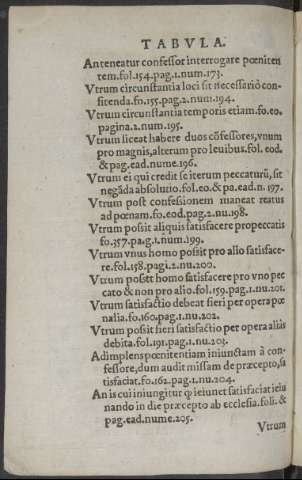 TABVLA.
An teneatur confessor interrogare pœniten
tem.fol.154.pag.1.num.173.
Vtrum circunstantia loci sit necessariò con-
fitenda.fo.155.pag.2.num.194.
Vtrum circunstantia temporis etiam.fo.eo.
pagina.2.num.195.
Vtrum liceat habere duos cõfessores,vnum
pro magnis,alterum pro leuibus.fol. eod.
& pag.ead.nume.196.
Vtrum ei qui credit se iterum peccaturũ, sit
negãda absolutio.fol.eo.& pa.ead.n. 197.
Vtrum post confessionem maneat reatus
ad pœnam.fo.eod.pag.2.nu.198.
Vtrum possit aliquis satisfacere pro peccatis
fo.357.pa.g.1.num.199.
Vtrum vnus homo possit pro alio satisface-
re.fol.158.pagi.2.nu.200.
Vtrum possit homo satisfacere pro vno pec
cato & non pro alio.fol.159.pag.1.nu.201.
Vtrum satisfactio debeat fieri per opera pœ
nalia.fo.160.pag.1.nu.202.
Vtrum possit fieri satisfactio per opera aliàs
debita.fol.191.pag.1.nu.203.
Adimplens pœnitentiam iniunctam à con-
fessore,dum audit missam de præcepto,sa
tisfaciat.fo.162.pag.1.nu.204.
An is cui iniungitur q̃ ieiunet satisfaciat ieiu
nando in die præcepto ab ecclesia.foli. &
pag.ead.nume.205.
Vtrum